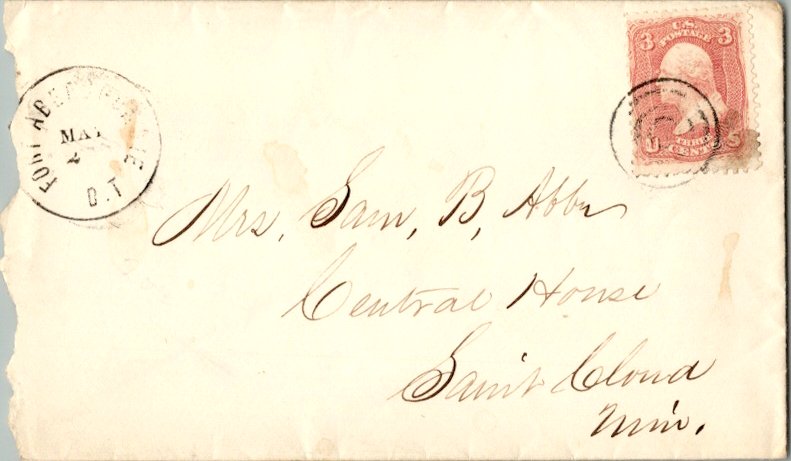 FORT ABERCROMBIE
MAY
2
D.T
U.S.
POSTAGE
3 3
THREE
U CENTS S
Mrs, Sam, B, Abbe
Central House
Saint Cloud
Min.